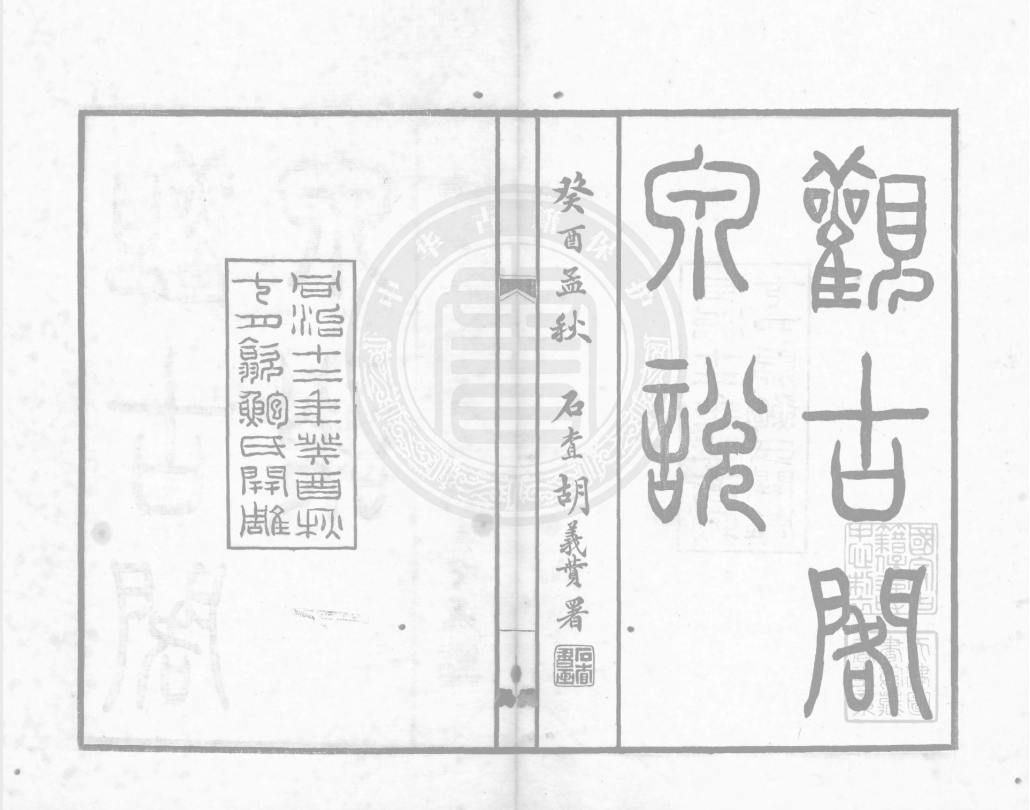 觀古閣
泉說
癸酉孟秋 石查胡義贊署
同治十二年癸酉秋
七月歙鮑氏開雕